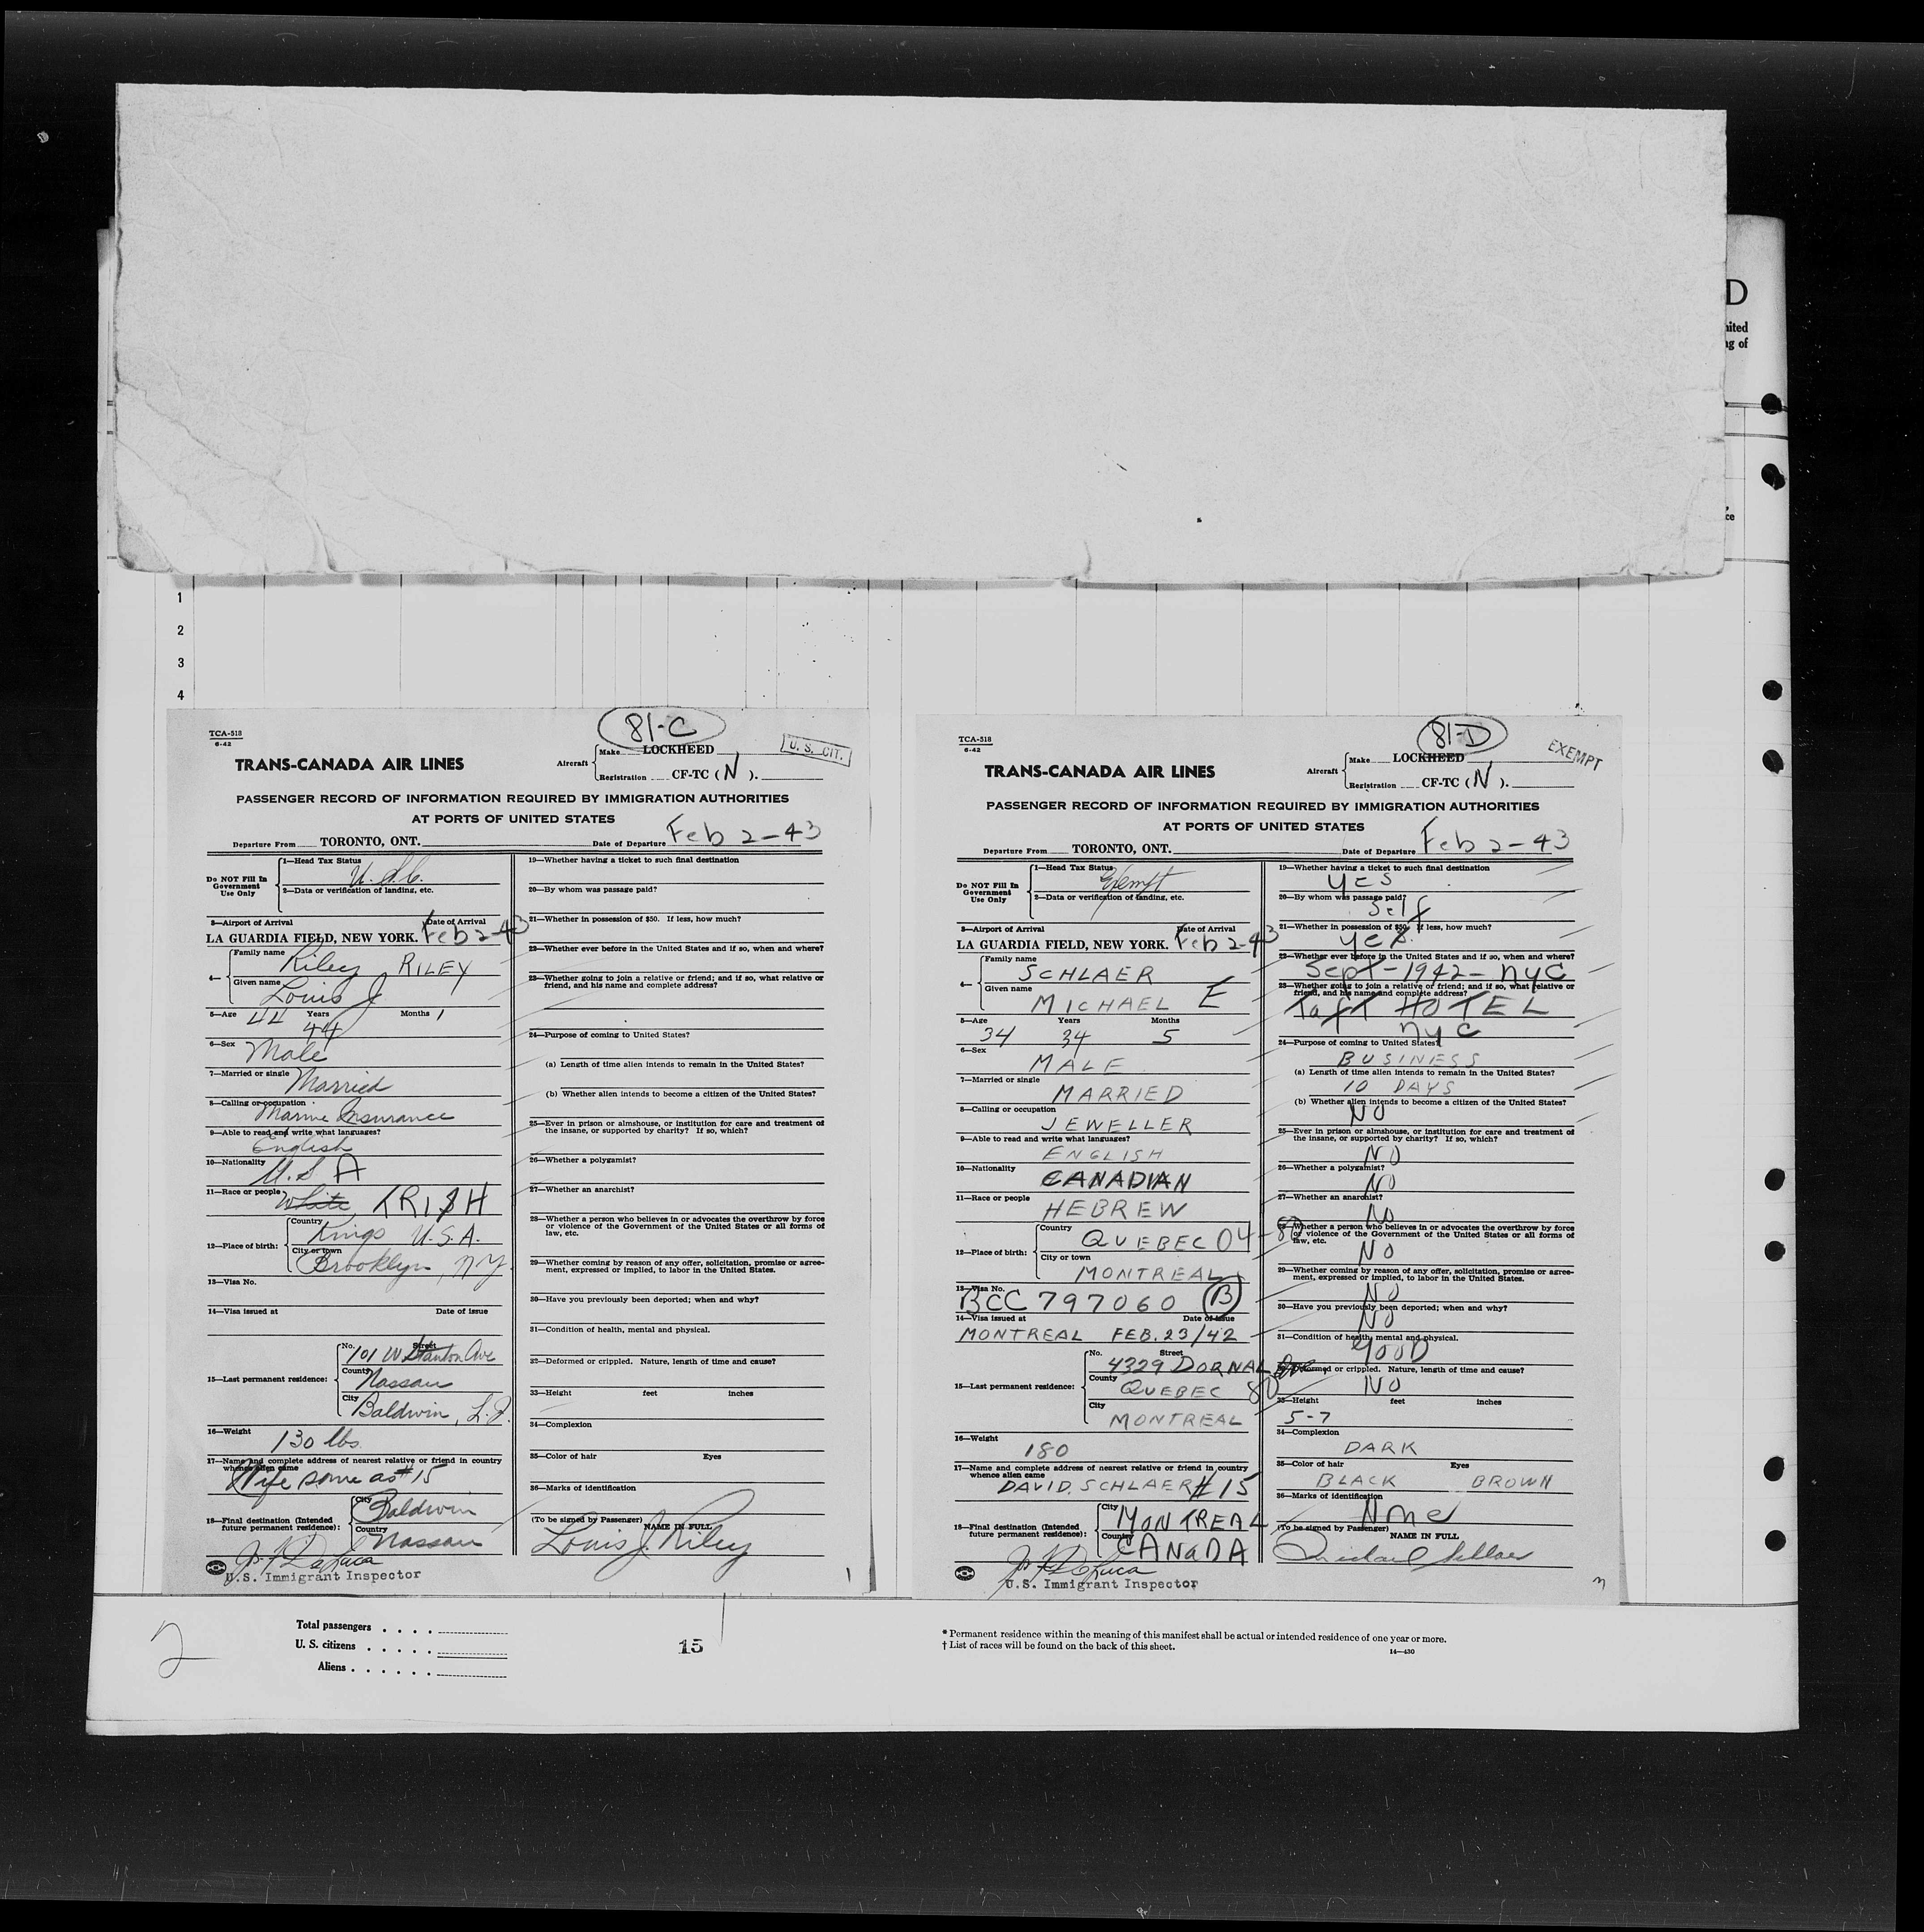 D
nited
ng of
ce
1
2
3
4
81-C
TCA-518
6-42
TRANS-CANADA AIR LINES
Aircraft
Make LOCKHEED
Registration CF-TC (N).
U. S. CIT.
PASSENGER RECORD OF INFORMATION REQUIRED BY IMMIGRATION AUTHORITIES
AT PORTS OF UNITED STATES
Departure From TORONTO, ONT. Date of Departure Feb 2-43
Do NOT Fill In
Government
Use Only
1—Head Tax Status
U.S.C.
2—Data or verification of landing, etc.
3—Airport of Arrival Date of Arrival
LA GUARDIA FIELD, NEW YORK. Feb 2-43
4—
Family name
Riley RILEY
Given name
Louis J
5—Age Years Months
44 44 1
6—Sex
Male
7—Married or single
Married
8—Calling or occupation
Marine Insurance
9—Able to read and write what languages?
English
10—Nationality
U.S A
11—Race or people
White IRISH
12—Place of birth:
Country
Kings U.S.A.
City or town
Brooklyn, NY.
13—Visa No.
14—Visa issued at Date of issue
15—Last permanent residence:
No. Street
101 W Stanton Ave
County
Nassau
City
Baldwin, L.I.
16—Weight
130 lbs.
17—Name and complete address of nearest relative or friend in country
whence alien came
Wife same as #15
18—Final destination (Intended
future permanent residence):
City
Baldwin
Country
Nassau
U.S. Immigrant Inspector
19—Whether having a ticket to such final destination
20—By whom was passage paid?
21—Whether in possession of $50. If less, how much?
22—Whether ever before in the United States and if so, when and where?
23—Whether going to join a relative or friend; and if so, what relative or
friend, and his name and complete address?
24—Purpose of coming to United States?
(a) Length of time alien intends to remain in the United States?
(b) Whether alien intends to become a citizen of the United States?
25—Ever in prison or almshouse, or institution for care and treatment of
the insane, or supported by charity? If so, which?
26—Whether a polygamist?
27—Whether an anarchist?
28—Whether a person who believes in or advocates the overthrow by force
or violence of the Government of the United States or all forms of
law, etc.
29—Whether coming by reason of any offer, solicitation, promise or agree-
ment, expressed or implied, to labor in the United States.
30—Have you previously been deported; when and why?
31—Condition of health, mental and physical.
32—Deformed or crippled. Nature, length of time and cause?
33—Height feet inches
34—Complexion
35—Color of hair Eyes
36—Marks of identification
(To be signed by Passenger) NAME IN FULL
Louis J. Riley
81-D
TCA-518
6-42
TRANS-CANADA AIR LINES
Aircraft
Make LOCKHEED
Registration CF-TC (N).
EXEMPT
PASSENGER RECORD OF INFORMATION REQUIRED BY IMMIGRATION AUTHORITIES
AT PORTS OF UNITED STATES
Departure From TORONTO, ONT. Date of Departure Feb 2-43
Do NOT Fill In
Government
Use Only
1—Head Tax Status
Exempt
2—Data or verification of landing, etc.
3—Airport of Arrival Date of Arrival
LA GUARDIA FIELD, NEW YORK. Feb 2-43
4—
Family name
SCHLAER
Given name
MICHAEL E
5—Age Years Months
34 34 5
6—Sex
MALE
7—Married or single
MARRIED
8—Calling or occupation
JEWELLER
9—Able to read and write what languages?
ENGLISH
10—Nationality
CANADIAN
11—Race or people
HEBREW
12—Place of birth:
Country
QUEBEC 04-80
City or town
MONTREAL
13—Visa No.
BCC 797060 B
14—Visa issued at Date of issue
MONTREAL FEB. 23/42
15—Last permanent residence:
No. Street
4329 DORNAL Ave
County
QUEBEC 80
City
MONTREAL
16—Weight
180
17—Name and complete address of nearest relative or friend in country
whence alien came
DAVID. SCHLAER #15
18—Final destination (Intended
future permanent residence):
City
MONTREAL
Country
CANADA
U.S. Immigrant Inspector
19—Whether having a ticket to such final destination
yes
20—By whom was passage paid?
Self
21—Whether in possession of $50. If less, how much?
yes.
22—Whether ever before in the United States and if so, when and where?
Sept-1942-NYC
23—Whether going to join a relative or friend; and if so, what relative or
friend, and his name and complete address?
Taft HOTEL
NYC
24—Purpose of coming to United States?
BUSINESS
(a) Length of time alien intends to remain in the United States?
10 DAYS
(b) Whether alien intends to become a citizen of the United States?
NO
25—Ever in prison or almshouse, or institution for care and treatment of
the insane, or supported by charity? If so, which?
NO
26—Whether a polygamist?
NO
27—Whether an anarchist?
NO
28—Whether a person who believes in or advocates the overthrow by force
or violence of the Government of the United States or all forms of
law, etc.
NO
29—Whether coming by reason of any offer, solicitation, promise or agree-
ment, expressed or implied, to labor in the United States.
NO
30—Have you previously been deported; when and why?
NO
31—Condition of health, mental and physical.
GOOD
32—Deformed or crippled. Nature, length of time and cause?
NO
33—Height feet inches
5-7
34—Complexion
DARK
35—Color of hair Eyes
BLACK BROWN
36—Marks of identification
None
(To be signed by Passenger) NAME IN FULL
Michael Schlaer
2
Total passengers
U. S. citizens
Aliens
15
* Permanent residence within the meaning of this manifest shall be actual or intended residence of one year or more.
† List of races will be found on the back of this sheet.
14—430